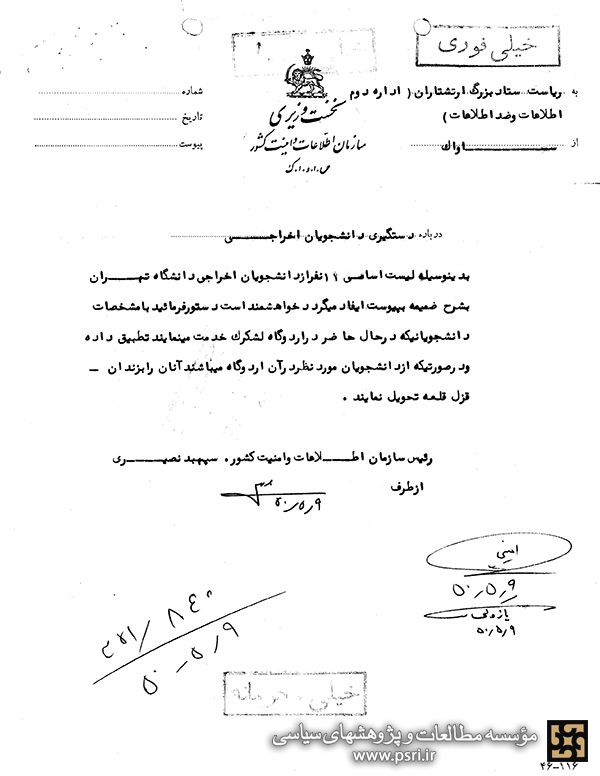 خیلی فوری
به ریاست ستاد بزرگ ارتشتاران ( اداره دوم
اطلاعات وضد اطلاعات )
از ســـــــاواک
نخست وزیری
سازمان اطلاعات و امنیت کشور
س.ا.و.ا.ک
شماره
تاریخ
پیوست
درباره دستگیری دانشجویان اخراجـــی
بدینوسیله لیست اسامی ۱۹ نفراز دانشجویان اخراجی دانشگاه تهـــران
بشرح ضمیمه بپیوست ایفاد میگردد خواهشمند است دستورفرمائید با مشخصات
دانشجویانیکه درحال حاضر دراردوگاه لشکرک خدمت مینمایند تطبیق داده
ودرصورتیکه ازدانشجویان مورد نظردرآن اردوگاه میباشند آنان رابزندان –
قزل قلعه تحویل نمایند .
رئیس سازمان اطـــلاعات وامنیت کشور . سپهبد نصیـــری
ازطرف
۵۰٫۵٫۹
امینی
۵۰٫۵٫۹
۵۰٫۵٫۹
۵۰٫۵٫۹
خیلی محرمانه
مؤسسه مطالعات و پژوهشهای سیاسی
www.psri.ir
۴۶-۱۱۶